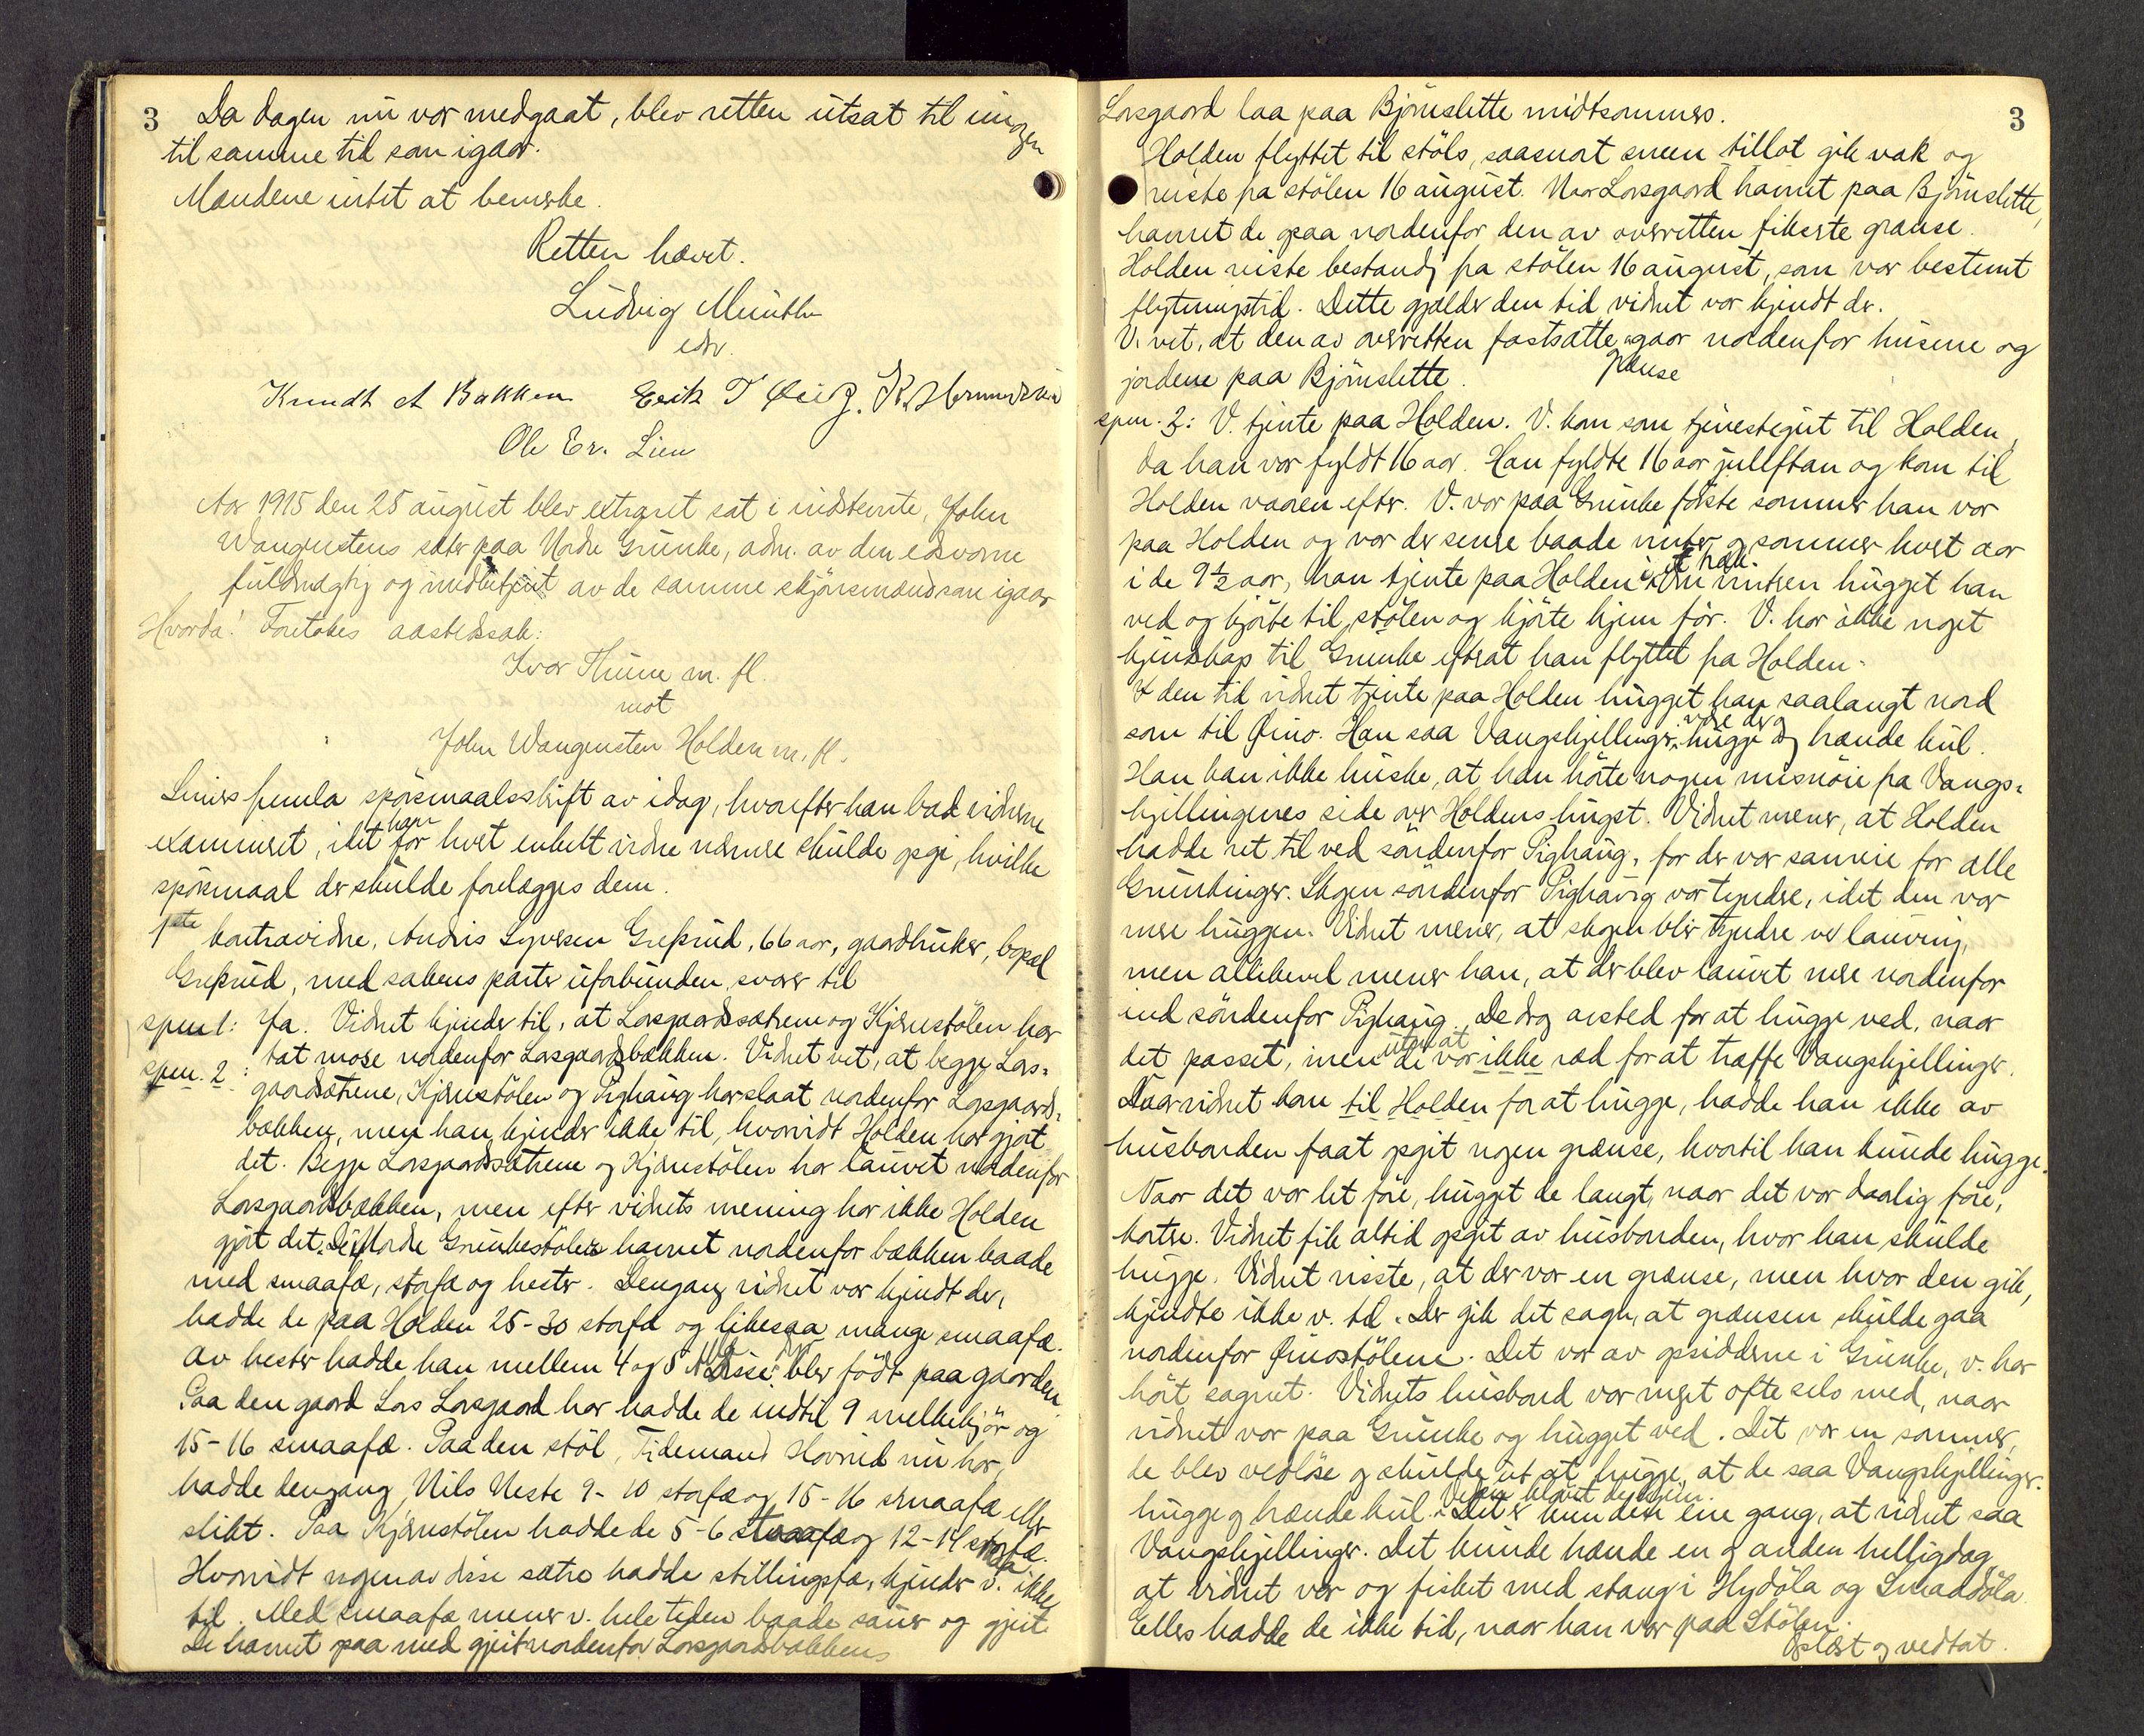 3
Da dagen nu var medgaat, blev retten utsat til imorgen
til samme tid som igaar.
Mændene intet at bemerke.
Retten hævet.
Ludvig Munthe
edv.
Knudt A Bakken Erik T Øie J. K. Hermundstad
Ole Er. Lien
Aar 1915 den 25 august blev extraret sat i indstevnte, John
Wangenstens sæter paa Nordre Grunke, adm. av den edsvorne
fuldmægtig og medbetjent av de samme skjønsmænd som igaar
Hvorda! Foretokes aastedssak:
Ivar Thune m. fl.
mot
John Wangensten Holden m. fl.
Liniers fremla spørsmaalsskrift av idag, hvorefter han bad vidnerne
examinert, idet han for hvert enkelt vidne nærmere skulde opgi, hvilke
spørsmaal der skulde forelægges dem.
1ste kontravidne, Andris Syversen Grefsrud, 66 aar, gaardbruker, bopæl
Grefsrud, med sakens parter uforbunden, svarer til
spm 1: Ja. Vidnet kjender til, at Lorsgaardssætrene og Kjernstølen har
tat mose nordenfor Lorsgaardsbækken. Vidnet vet, at begge Lors-
spm. 2: gaardsætrene, Kjernstølen og Pighaug har slaat nordenfor Lorsgaards-
bækken, men han kjender ikke til, hvorvidt Holden har gjort
det. Begge Lorsgaardssætrene og Kjernstølen har lauvet nordenfor
Lorsgaardsbækken, men efter vidnets mening har ikke Holden
gjort det. De Nordre Grunkestøler havnet nordenfor bækken baade
med smaafæ, storfæ og hester. Dengang vidnet var kjendt der,
hadde de paa Holden 25-30 storfæ og likesaa mange smaafæ.
Av hester hadde han mellem 4 og 5 Disse blev født paa gaarden
Paa den gaard Lars Lorsgaard har hadde de indtil 9 melkekjør og
15-16 smaafæ. Paa den støl, Tidemand Hovrud nu har,
hadde dengang Nils Neste 9-10 storfæ og 15-16 smaafæ eller
slikt. Paa Kjernstølen hadde de 5-6 storfæ og 12-14 smaafæ.
Hvorvidt nogen av disse sætre hadde stillingsfæ, kjender v. ikke
til. Med smaafæ mener v. hele tiden baade sauer og gjeit.
De havnet paa med gjeit nordenfor Lorsgaardsbækken
3
Lorsgaard laa paa Bjørnslette midtsommers.
Holden flyttet til støls, saasnart sneen tillot gik væk og
reiste fra stølen 16 august. Naar Lorsgaard havnet paa Bjørnslette,
havnet de ogsaa nordenfor den av overretten fikserte grænse.
Holden reiste bestandig fra stølen 16 august, som var bestemt
flytningstid. Dette gjælder den tid vidnet var kjendt der.
V. vet, at den av overretten fastsatte grænse gaar nordenfor husene og
jordene paa Bjørnslette.
spm. 3: V. tjente paa Holden. V. kom som tjenestegut til Holden,
da han var fyldt 16 aar. Han fyldte 16 aar juleftan og kom til
Holden vaaren efter. V. var paa Grunke første sommer han var
paa Holden og var der senere baade vinter og sommer hvert aar
i de 9½ aar, han tjente paa Holden. Om vintren hugget han
ved og kjørte til stølen og kjørte hjem fôr. V. har ikke noget
kjendskap til Grunke efterat han flyttet fra Holden.
I den tid vidnet tjente paa Holden hugget han saalangt nord
som til Øino. Han saa Vangskjellinger være der og hugge og brænde kul.
Han kan ikke huske, at han hørte nogen misnøie fra Vangs-
kjellingenes side over Holdens hugst. Vidnet mener, at Holden
hadde ret til ved søndenfor Pighaug, for der var sameie for alle
Grunkinger. Skogen søndenfor Pighaug var tyndre, idet den var
mere huggen. Vidnet mener, at skogen blir tyndre ved lauving,
men allikevel mener han, at der blev lauvet mere nordenfor
end søndenfor Pighaug. De drog avsted for at hugge ved, naar
det passet, uten at de var ikke ræd for at træffe Vangskjellinger.
Naar vidnet kom til Holden for at hugge, hadde han ikke av
husbonden faat opgit nogen grænse, hvortil han kunde hugge.
Naar det var let føre, hugget de langt, naar det var daarlig føre,
kortere. Vidnet fik altid opgit av husbonden, hvor han skulde
hugge. Vidnet visste, at der var en grænse, men hvor den gik,
kjendte ikke v. til. Der gik det sagn, at grænsen skulde gaa
nordenfor Øinostølene. Det var av opsidderne i Grunke, v. har
hørt sagnet. Vidnets husbond var meget ofte selv med, naar
vidnet var paa Grunke og hugget ved. Det var en sommer,
de blev vedløse og skulde ut at hugge, at de saa Vangskjellinger
hugge og brænde kul. Det er kun den ene gang, at vidnet saa
Vangskjellinger. Det kunde hænde en og anden helligdag,
at vidnet var og fisket med stang i Hydøla og Smaadøla.
Ellers hadde de ikke tid, naar han var paa Stølen.
Oplæst og vedtat.